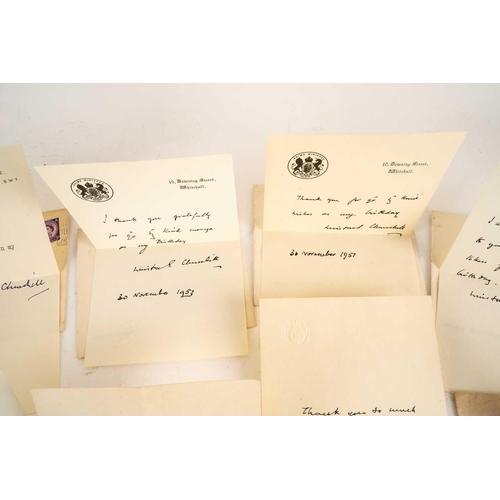 PRIME MINISTER
10, Downing Street,
Whitehall.
I thank you gratefully
for yr kind message
on my Birthday
Winston S. Churchill
30 November 1953
PRIME MINISTER
10, Downing Street,
Whitehall.
Thank you for yr kind
wishes on my birthday
Winston S. Churchill
30 November 1951
Churchill
Thank you so much